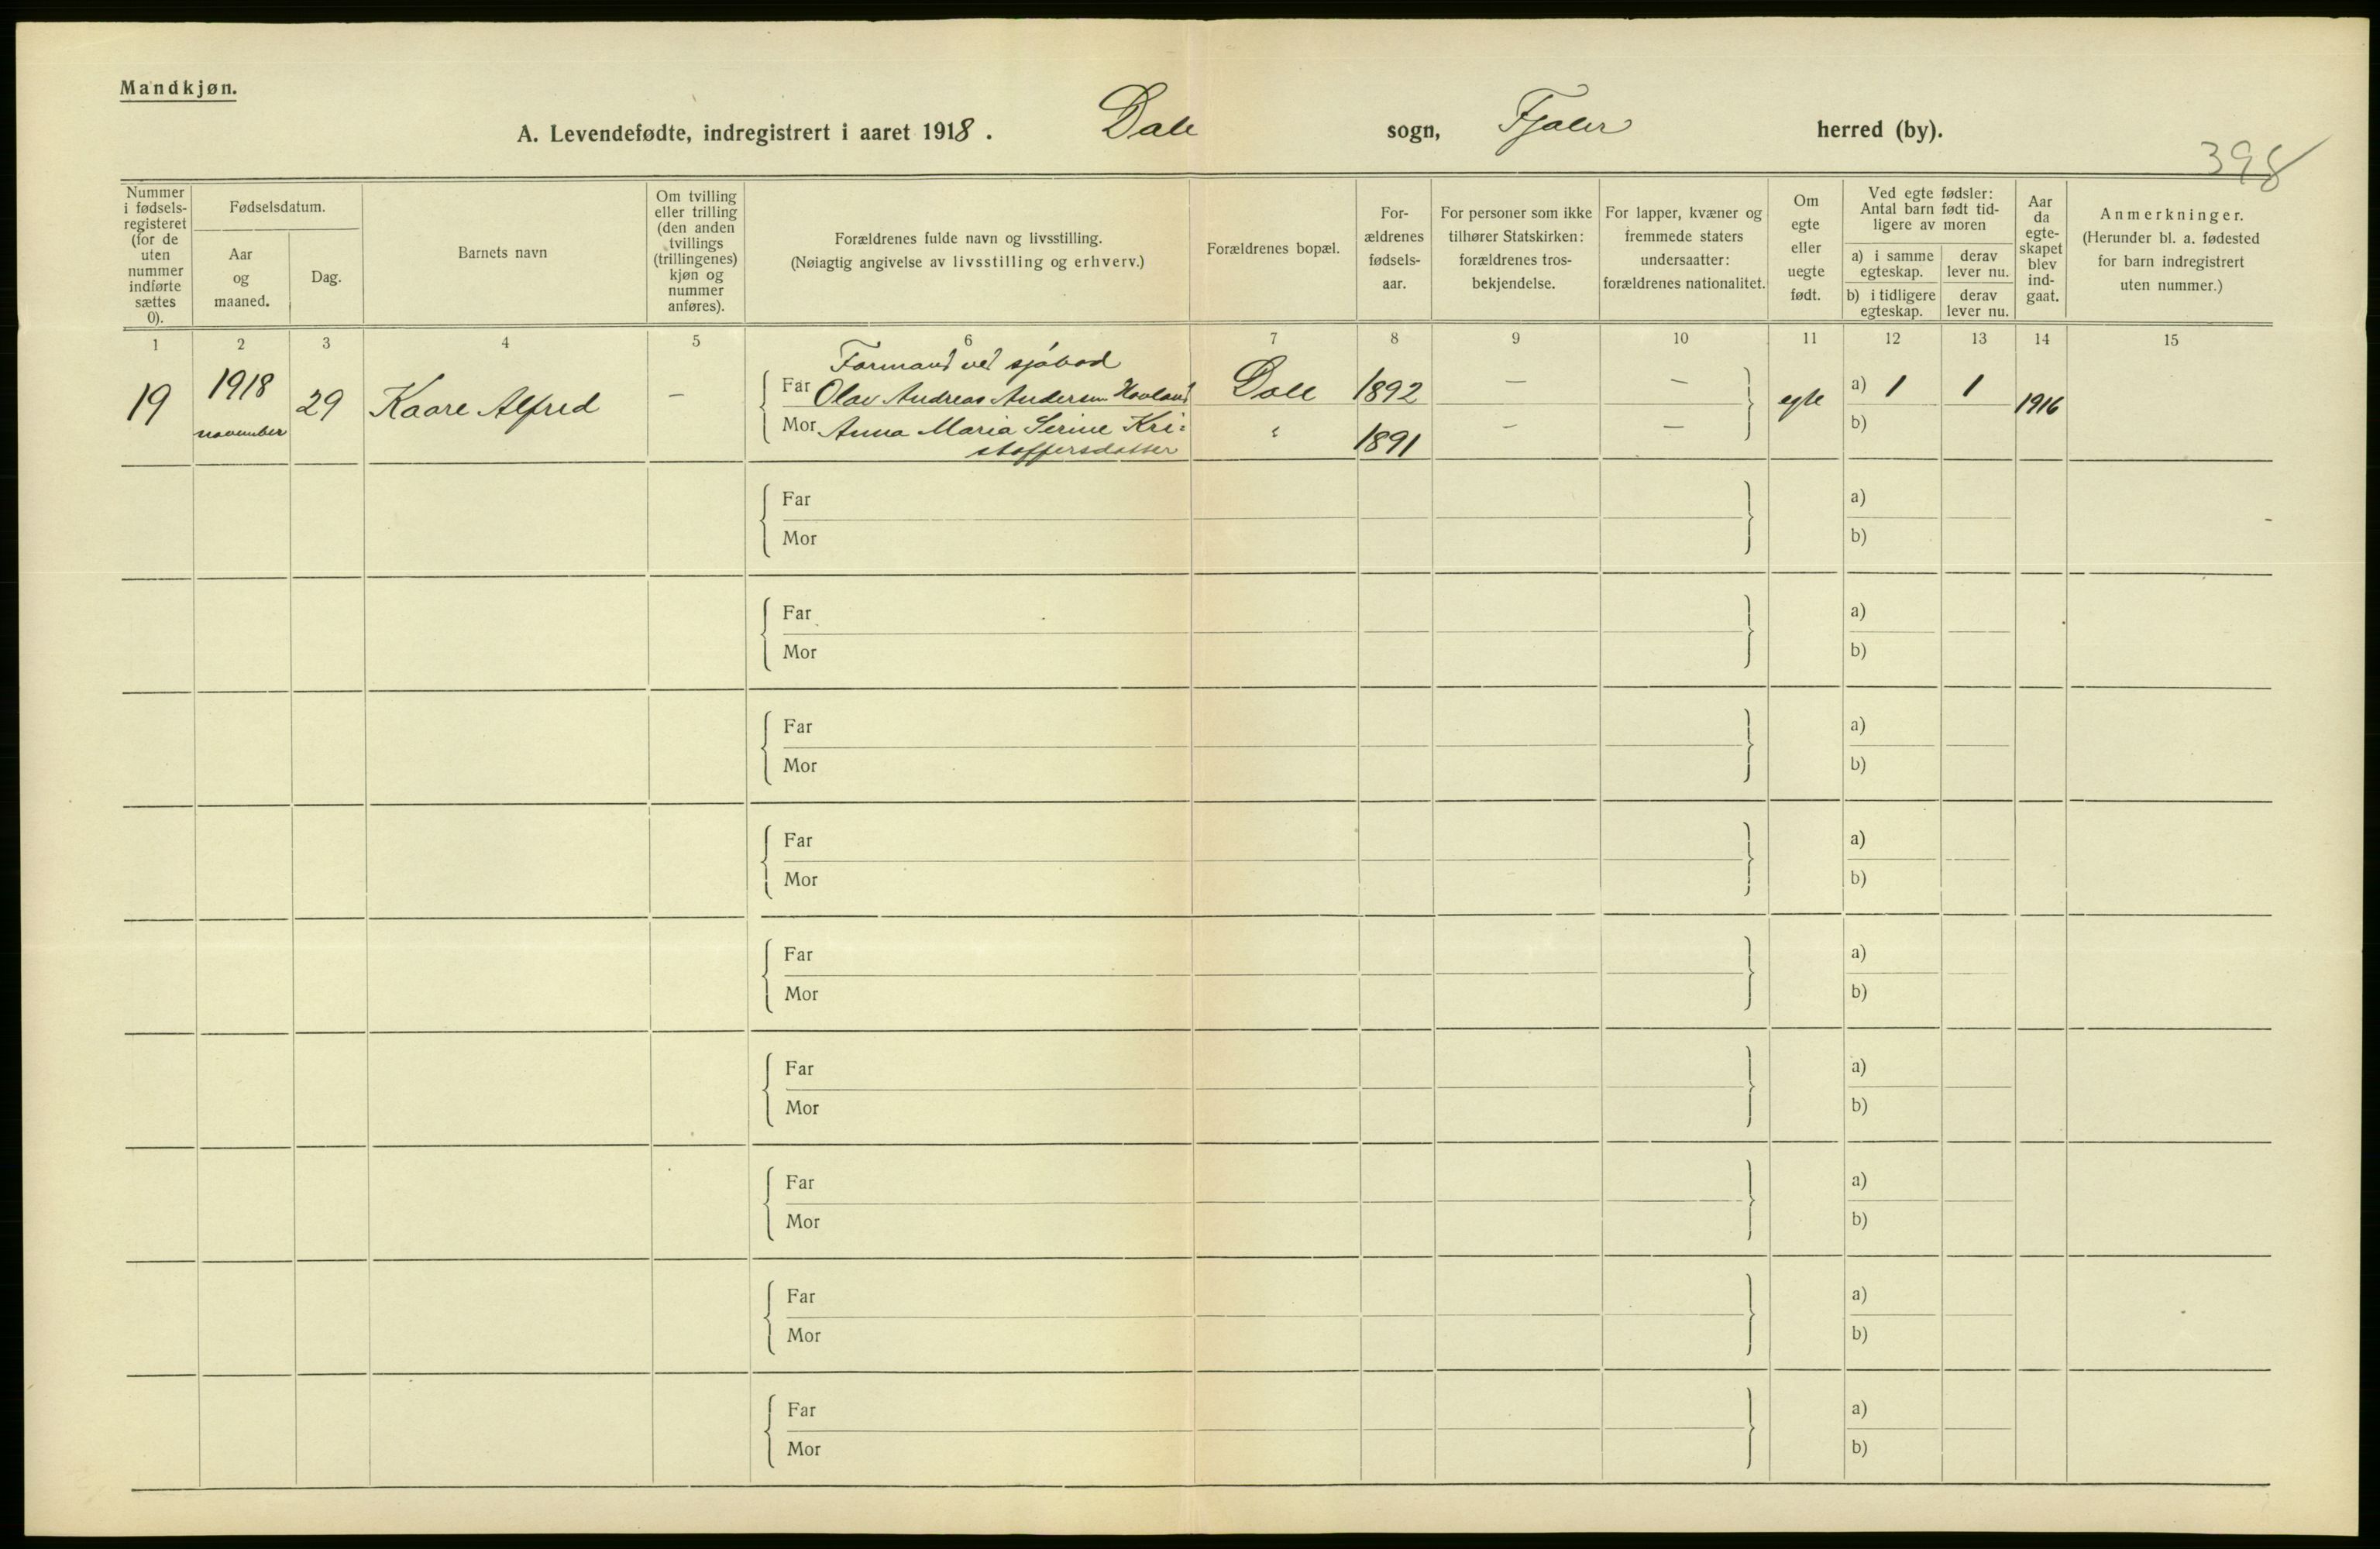 Mandkjøn.
A. Levendefødte, indregistrert i aaret 1918. Dale sogn, Fjaler herred (by).
398
Nummer i fødsels-registeret (for de uten nummer indførte sættes 0).
Fødselsdatum.
Aar og maaned.
Dag.
Barnets navn
Om tvilling eller trilling (den anden tvillings (trillingenes) kjøn og nummer anføres).
Forældrenes fulde navn og livsstilling.
(Nøiagtig angivelse av livsstilling og erhverv.)
Forældrenes bopæl.
For-ældrenes fødsels-aar.
For personer som ikke tilhører Statskirken: forældrenes tros-bekjendelse.
For lapper, kvæner og fremmede staters undersaatter: forældrenes nationalitet.
Om egte eller uegte født.
Ved egte fødsler: Antal barn født tid-ligere av moren
a) i samme egteskap.
derav lever nu.
b) i tidligere egteskap.
derav lever nu.
Aar da egte-skapet blev ind-gaat.
Anmerkninger.
(Herunder bl. a. fødested for barn indregistrert uten nummer.)
1 2 3 4 5 6 7 8 9 10 11 12 13 14 15
Formand ved sjøbad
19 1918 november 29 Kaare Alfred —
Far Olav Andreas Andersen Hovland Dale 1892 — — egte a) 1 1 1916
Mor Anna Maria Serine Kri:
stoffersdotter " 1891 — — b)
Far a)
Mor b)
Far a)
Mor b)
Far a)
Mor b)
Far a)
Mor b)
Far a)
Mor b)
Far a)
Mor b)
Far a)
Mor b)
Far a)
Mor b)
Far a)
Mor b)